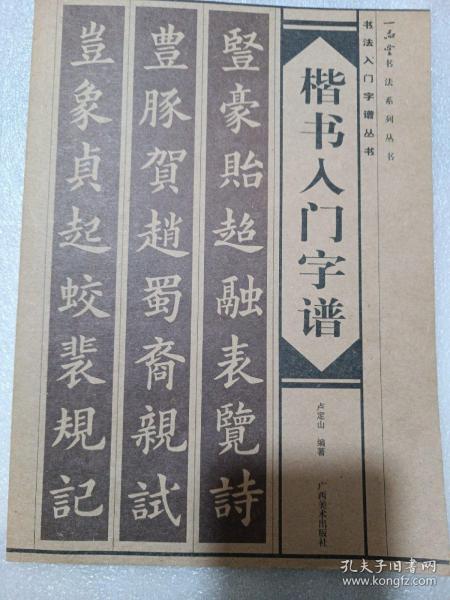 一品堂书法系列丛书
书法入门字谱丛书
楷书入门字谱
卢定山 编著
广西美术出版社
豎豪貽超融表覽詩
豊豚賀趙蜀裔親試
豈象貞起蛟裴規記
孔夫子旧书网
www.kongfz.com